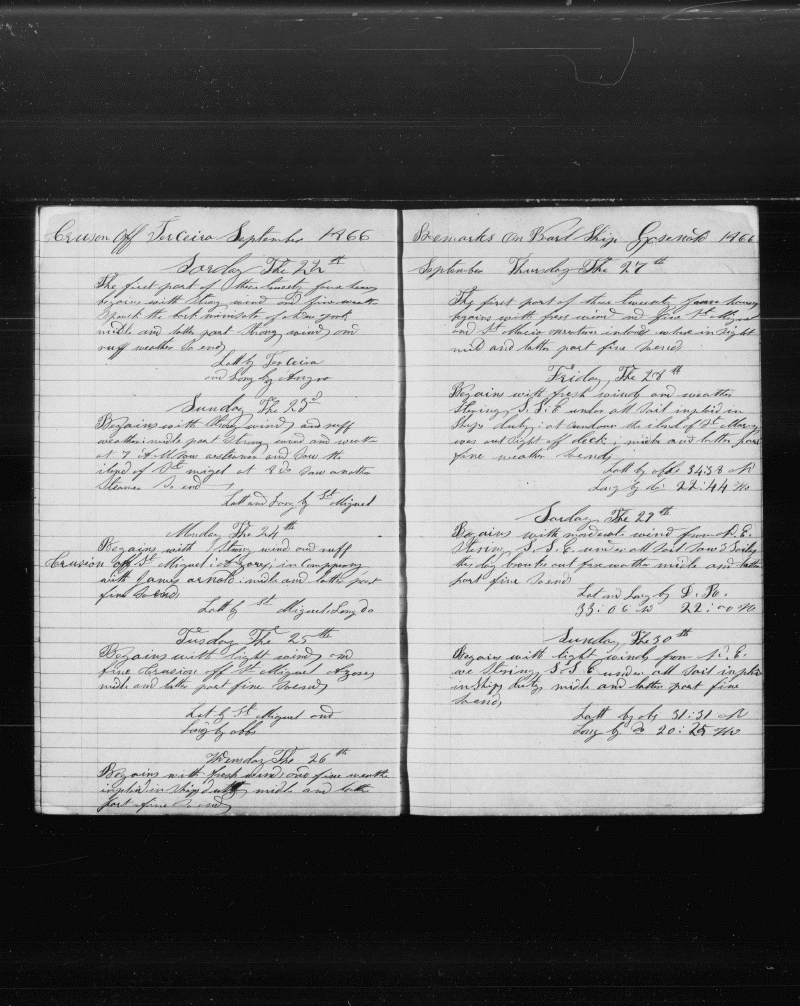 Cruson off Terceira September 1866
Sarday The 22th
The first part of these twenty four hours
begains with strong wind and fine weath
Spock the bark of New york
midle and latter part strong wind and
ruff weather So ends
Latt by Terceira
and Long by
Sunday The 23d
Begains with strong wind and ruff
weather midle part strong wind and weath
at 7 A M saw a steamer and saw the
iland of St migel at 8 do saw another
steamer So ends
Latt and Long by St Miguel
Monday The 24th
Begains with Strong wind and ruff
Crusion off St Miguel Azores, in Company
with James arnold midle and latter part
fine So ends
Latt by St Miguel Long do
Tusday The 25th
Begains with light wind and
fine Crusion off St Miguel Azores
midle and latter part fine So ends
Lat by St Miguel and
Long by obbs
Wensday The 26th
Begains with fresh wind and fine weathe
in Ships duty midle and latte
part fine So ends
Remarks On Bord Ship Gosnold 1866
September Thursday The 27th
The first part of these twenty four hours
begains with fres wind and fine St
and St in sight
midl and latter part fine So ends
Friday The 28th
Begains with fresh winds and weather
Stering S. S. E under all Sail in
Ships duty at Sundown the iland of St Marys
was out Sight off deck midle and latter part
fine weather So ends
Latt by obbs 34:38 N
Long by do 22:44 W
Sarday The 29
Begains with moderate wind from N. E.
Stering S. S. E under all Sail Saw 3 Sails
this day midle and latter
part fine So ends
Lat and Long by D. R.
33:06 N 22:00 W
Sunday The 30th
Begains with light winds from N. E.
we Stering S. S. E under all Sail
in Ships duty midle and latter part fine
So ends,
Latt by obs 31:31 N
Long by do 20:25 W